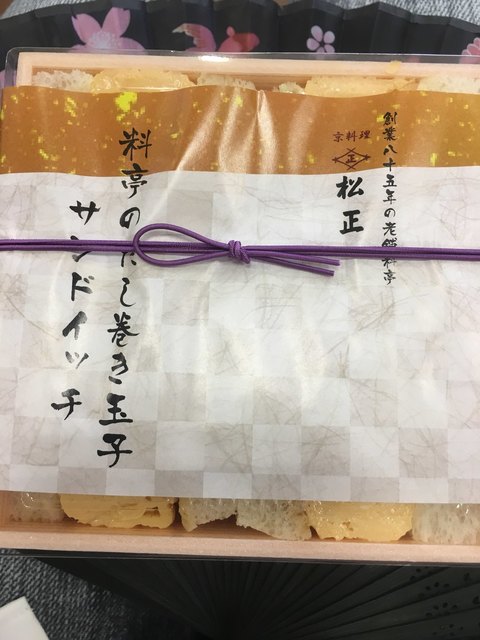 創業八十五年の老舗料亭
京料理
正
松正
料亭のだし巻き玉子
サンドイッチ